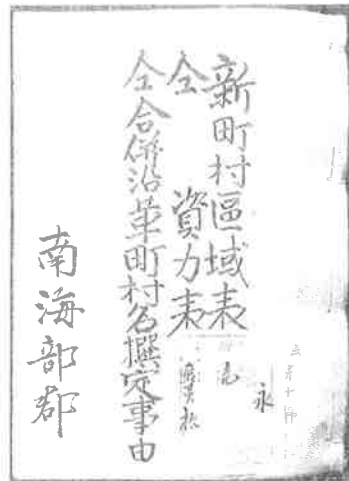 永
新町村區域表
仝 資力表
仝合併沿革町村名撰定事由
南海部郡